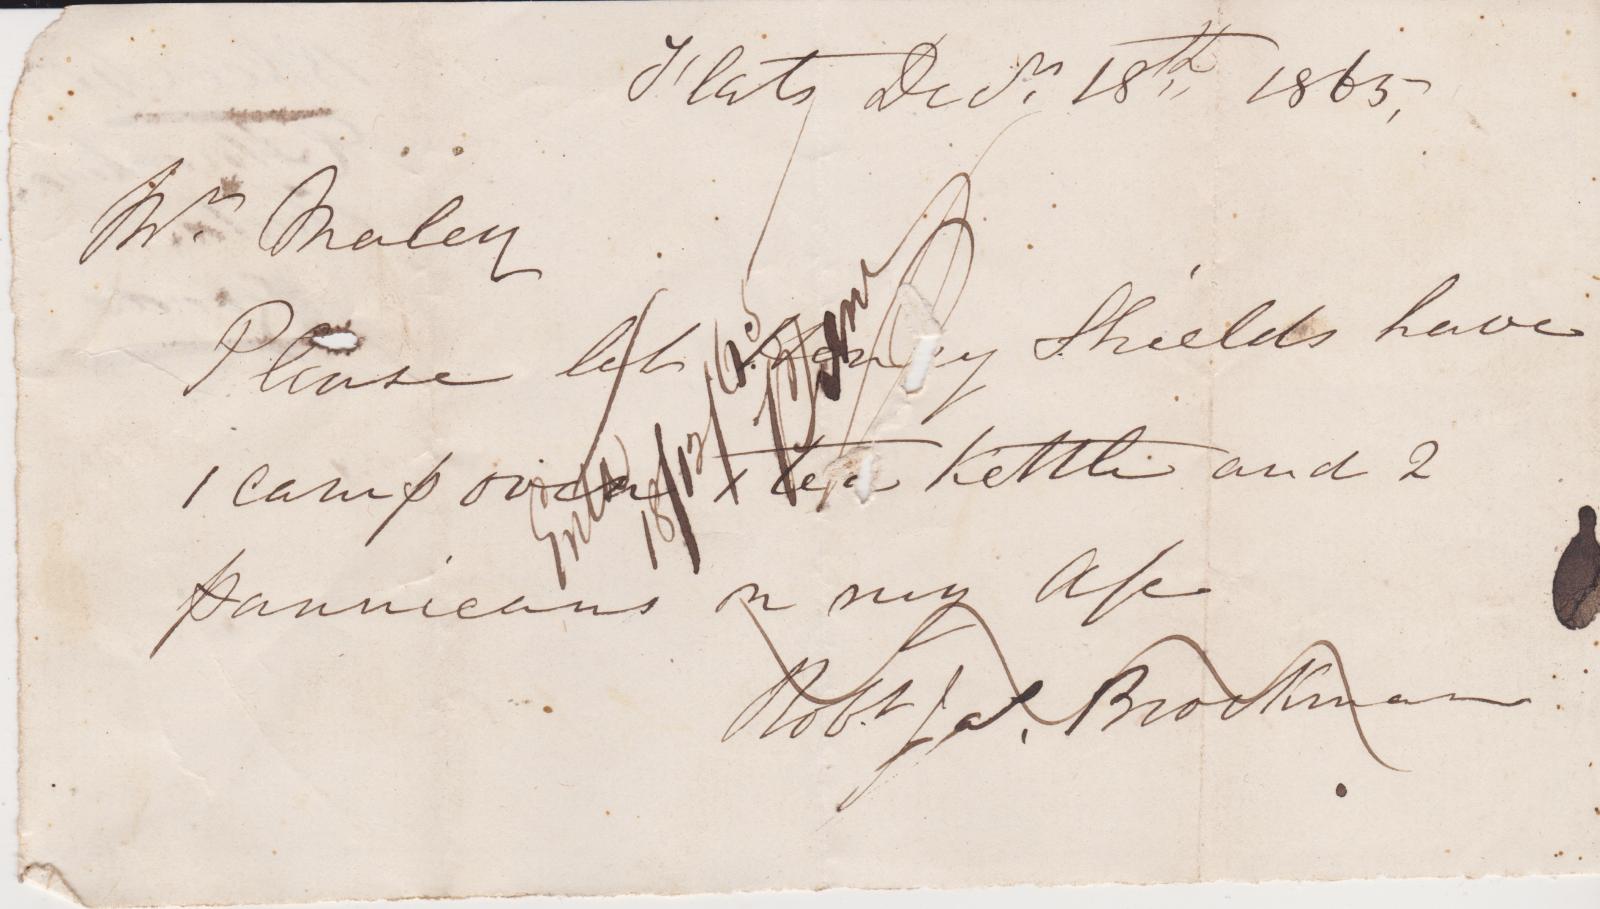 Flats Decr. 18th 1865,
Mr. Maley
Please let Henry Shields have
1 camp oven 1 tea Kettle and 2
pannicans on my a/c
Robt. Jas. Brockman
Entd
18/12/65